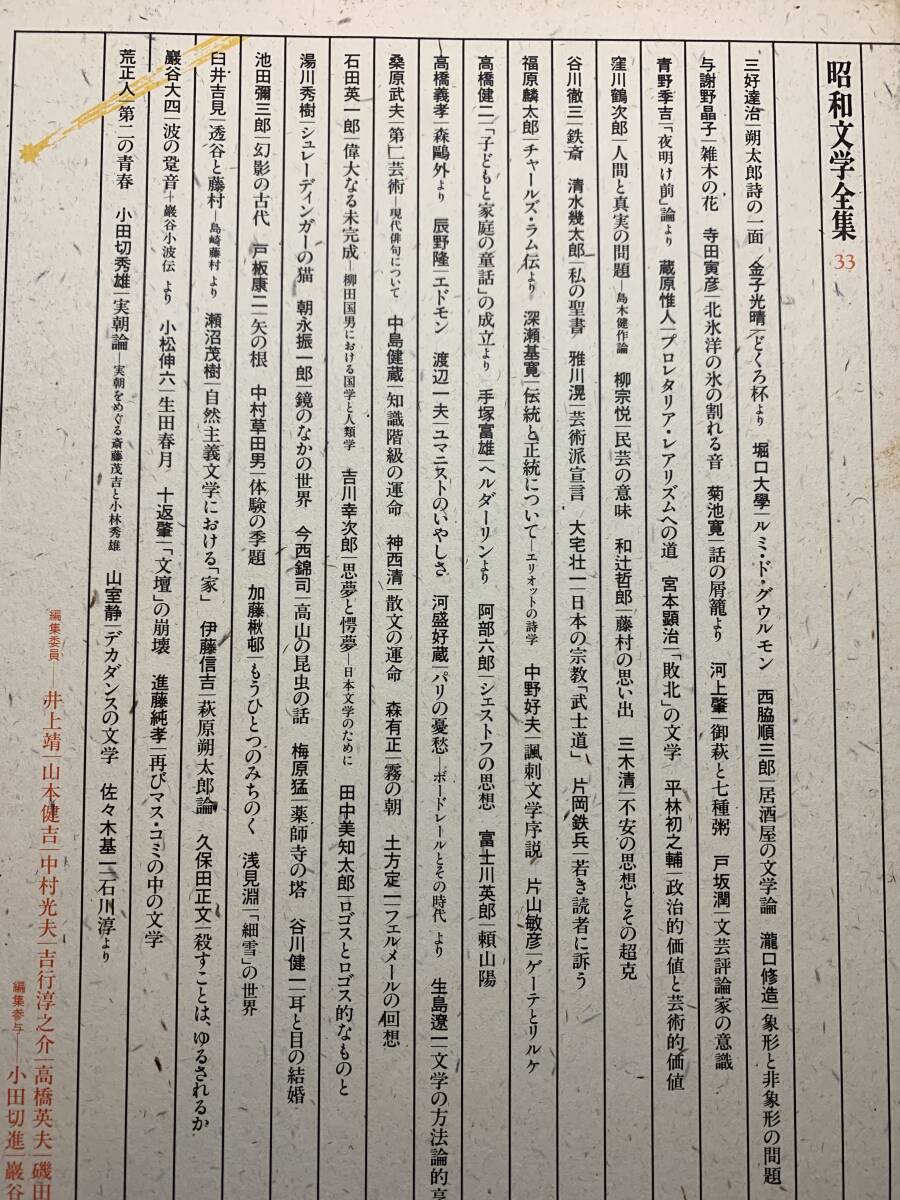 昭和文学全集 33
三好達治｜朔太郎詩の一面 金子光晴｜どくろ杯より 堀口大學｜ルミ・ド・グウルモン 西脇順三郎｜居酒屋の文学論 瀧口修造｜象形と非象形の問題
与謝野晶子｜雑木の花 寺田寅彦｜北氷洋の氷の割れる音 菊池寛｜話の屑籠より 河上肇｜御萩と七種粥 戸坂潤｜文芸評論家の意識
青野季吉｜「夜明け前」論より 蔵原惟人｜プロレタリア・レアリズムへの道 宮本顕治｜「敗北」の文学 平林初之輔｜政治的価値と芸術的価値
窪川鶴次郎｜人間と真実の問題―島木健作論 柳宗悦｜民芸の意味 和辻哲郎｜藤村の思い出 三木清｜不安の思想とその超克
谷川徹三｜鉄斎 清水幾太郎｜私の聖書 雅川滉｜芸術派宣言 大宅壮一｜日本の宗教「武士道」 片岡鉄兵｜若き読者に訴う
福原麟太郎｜チャールズ・ラム伝より 深瀬基寛｜伝統と正統について―エリオットの詩学 中野好夫｜諷刺文学序説 片山敏彦｜ゲーテとリルケ
高橋健二｜「子どもと家庭の童話」の成立より 手塚富雄｜ヘルダーリンより 阿部六郎｜シェストフの思想 富士川英郎｜頼山陽
高橋義孝｜森鷗外より 辰野隆｜エドモン 渡辺一夫｜ユマニストのいやしさ 河盛好蔵｜パリの憂愁―ボードレールとその時代 より 生島遼一｜文学の方法論的
桑原武夫｜第二芸術―現代俳句について 中島健蔵｜知識階級の運命 神西清｜散文の運命 森有正｜霧の朝 土方定一｜フェルメールの回想
石田英一郎｜偉大なる未完成―柳田国男における国学と人類学 吉川幸次郎｜思夢と愕夢―日本文学のために 田中美知太郎｜ロゴスとロゴス的なものと
湯川秀樹｜シュレーディンガーの猫 朝永振一郎｜鏡のなかの世界 今西錦司｜高山の昆虫の話 梅原猛｜薬師寺の塔 谷川健一｜耳と目の結婚
池田彌三郎｜幻影の古代 戸板康二｜矢の根 中村草田男｜体験の季題 加藤楸邨｜もうひとつのみちのく 浅見淵｜「細雪」の世界
臼井吉見｜透谷と藤村―島崎藤村 より 瀬沼茂樹｜自然主義文学における「家」 伊藤信吉｜萩原朔太郎論 久保田正文｜殺すことは、ゆるされるか
巖谷大四｜波の跫音＋巖谷小波伝 より 小松伸六｜生田春月 十返肇｜「文壇」の崩壊 進藤純孝｜再びマス・コミの中の文学
荒正人｜第二の青春 小田切秀雄｜実朝論―実朝をめぐる斎藤茂吉と小林秀雄 山室静｜デカダンスの文学 佐々木基一｜石川淳より
編集委員――井上靖｜山本健吉｜中村光夫｜吉行淳之介｜高橋英夫｜磯田
編集参与――小田切進｜巖谷